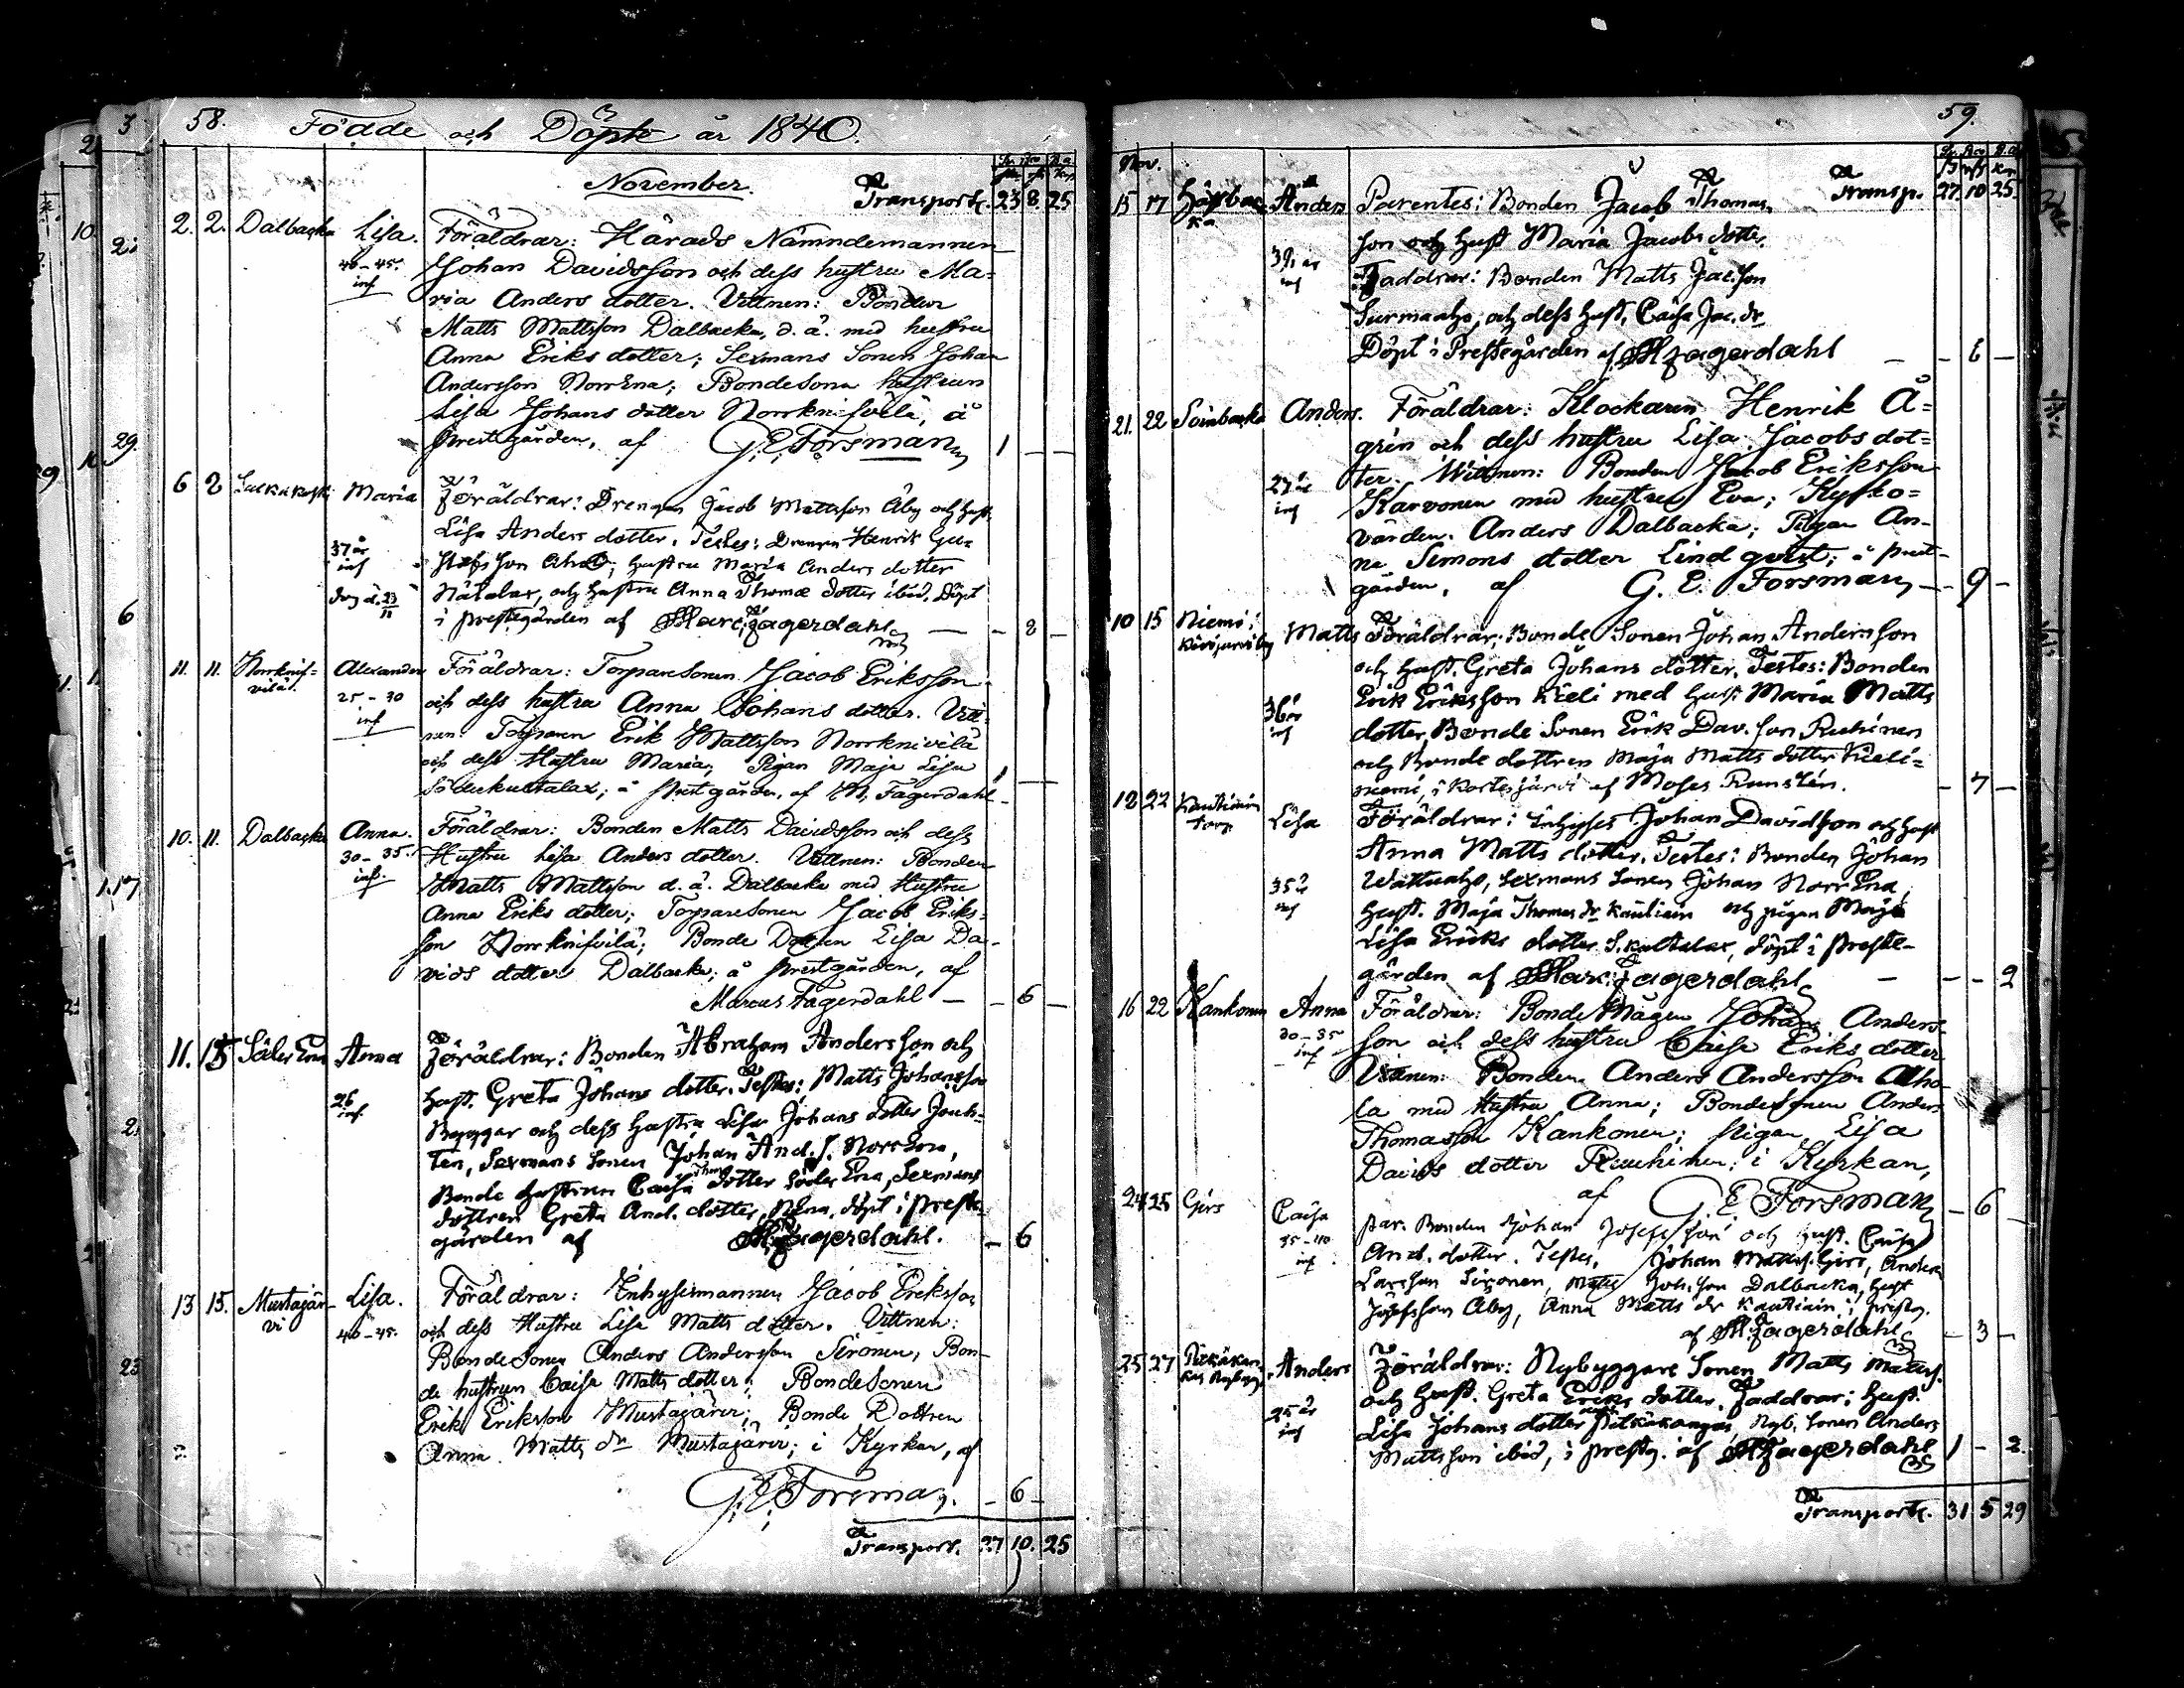 58. Födde och Döpte år 1840.
November.
Transport. 23 8. 25
2. 2. Dalbacka Lisa. Föräldrar: Härads Nämndemannen
40-45. inf Johan Davidsson och dess hustru Ma=
ria Anders dotter. Vittnen: Bonden
Matts Mattsson Dalbacka, d. ä. med hustru
Anna Eriks dotter; Sexmans Sonen Johan
Andersson Norr Ena; Bondesona hustrun
Lisa Johans dotter Norrknifvilä, å
prestgården, af G. E. Forsman 1 – –
6 8 Maria Föräldrar: Drengen Jacob Mattsson Åby och hust.
Lisa Anders dotter. Testes: Drengen Henrik Gu=
37 år inf hustru Maria Anders dotter
och hustru Anna Thomæ dotter ibid. Döpt
i prestegården af Marc: Fagerdahl – – 8 –
11. 11. Norrknif= vilä Alexander Föräldrar: Torpare Sonen Jacob Eriksson
25-30 inf och dess hustru Anna Johans dotter. Vitt=
nen: Torparen Erik Mattsson Norrknivilä
och dess Hustru Maria; Pigan Maja Lisa
Söderkultalax; å prestgården, af M. Fagerdahl 1 – –
10. 11. Dalbacka Anna. Föräldrar: Bonden Matts Davidsson och dess
30-35. inf. Hustru Lisa Anders dotter. Vittnen: Bonden
Matts Mattsson d. ä. Dalbacka med Hustru
Anna Eriks dotter; Torpare Sonen Jacob Eriks=
son Norrknifvilä; Bonde Dottren Lisa Da-
vids dotter Dalbacka; å prestgården, af
Marcus Fagerdahl – – 6 –
11. 15 Söder Ena Anna Föräldrar: Bonden Abraham Andersson och
26 inf hust. Greta Johans dotter. Testes: Matts Johansson
Byggar och dess hustru Lisa Johans dotter Jouh-
ten, Sexmans Sonen Johan And. s. Norr Ena,
Bonde hustrun Caisa Thom. dotter Söder Ena, Sexmans
dottren Greta And. dotter, N. Ena, döpt i preste
gården af M. Fagerdahl. – 6
13 15. Mustajär- vi Lisa. Föräldrar: Inhysismannen Jacob Eriksson
40-45. och dess Hustru Lisa Matts dotter. Vittnen:
Bonde Sonen Anders Andersson Sironen, Bon-
de hustrun Caisa Matts dotter; Bonde Sonen
Erik Eriksson Mustajärvi; Bonde Dottren
Anna Matts dr Mustajärvi; i Kyrkan, af
G. E. Forsman. – 6 –
Transport. 27 10. 25
59.
Nov.
Transp. 27. 10 25.
15 17 Anders Parentes: Bonden Jacob Thomas
son och hust Maria Jacobs dotter,
39 år inf Faddrar: Bonden Matts Jac. son
Surmaaho, och dess hust. Caisa Jac. dr
Döpt i Prestegården af M Fagerdahl – – 6 –
21. 22 Soinbacka Anders. Föräldrar: Klockaren Henrik Å=
grén och dess hustru Lisa Jacobs dot=
ter. Wittnen: Bonden Jacob Eriksson
27 år inf Karvonen med hustru Eva; Kyrko=
värden Anders Dalbacka; Pigan An-
na Simons dotter Lindqvist; å prest-
gården, af G. E. Forsman – – 9 –
10 15 Niemi i Matts Föräldrar: Bonde Sonen Johan Andersson
och hust. Greta Johans dotter. Testes: Bonden
36 år inf Erik Eriksson Kieli med hust. Maria Matts
dotter, Bonde Sonen Erik Dav. son Ruhinen
och Bonde dottren Maja Matts dotter Kieli=
niemi, i Kortesjärvi af Moses Runstén. – 7 –
18 22 Kautiain torp Lisa Föräldrar: Inhyses Johan Davidson och hust
Anna Matts dotter. Testes: Bonden Johan
35 år inf Wattuaho, Sexmans Sonen Johan Norr Ena
hust. Maja Thomæ dr Kautiain och pigan Maja
Lisa Eriks dotter S. kultalax, döpt i preste-
gården af Marc: Fagerdahl – – – 2
16 22 Kankonen Anna Föräldrar: Bonde Mågen Johan Anders-
30-35 inf son och dess hustru Caisa Eriks dotter
Vittnen: Bonden Anders Andersson Alho-
la med Hustru Anna; Bondesonen Anders
Thomasson Kankonen; pigan Lisa
Davids dotter Ruuhinen; i Kyrkan,
af G. E Forsman – 6 –
24 25 Girs Caisa par. Bonden Johan Josefsson och hust. Caisa
35-40 inf. And. dotter. Testes, Johan Mattss. Girs, Anders
Larsson Sironen, Matts Joh. son Dalbacka, hust
Josefsson Åby, Anna Matts dr Kautiain, i prestg.
af M. Fagerdahl – 3 –
25 27 Anders Föräldrar: Nybyggare Sonen Matts Mattss.
och hust. Greta Eriks dotter, Faddrar: hust.
25 år inf Lisa Johans dotter Pitkäkangas, Nyb. Sonen Anders
Mattsson ibid, i prestg. af M Fagerdahl 1 – 2.
Transport. 31 5 29